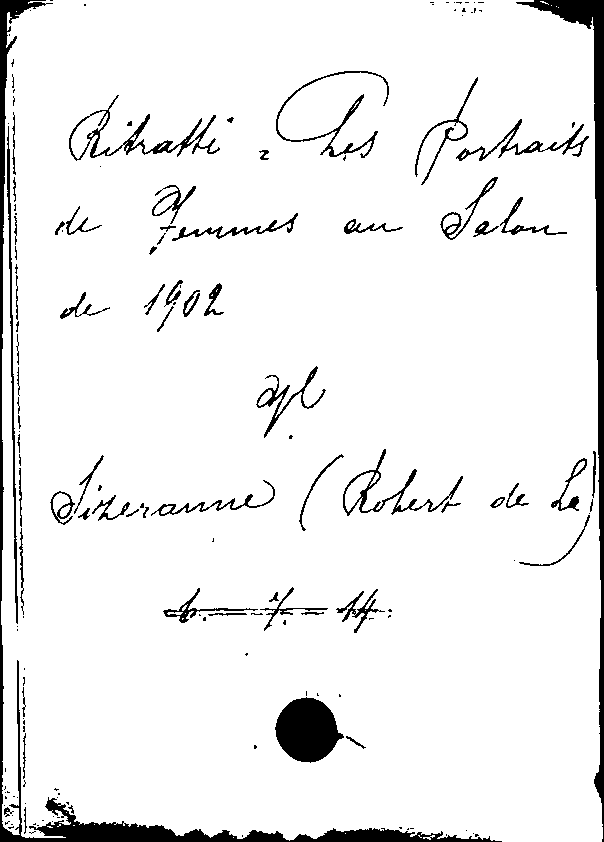 Ritratti = Les Portraits
de Femmes au Salon
de 1902
Sizeranne (Robert de La)
6. 7. 14.